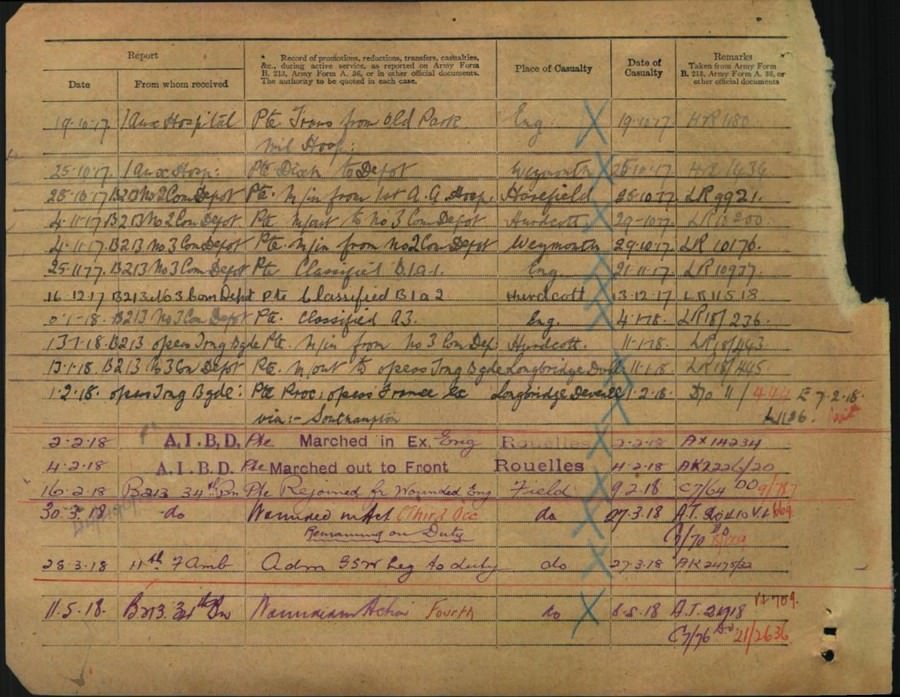 Report
Record of promotions, reductions, transfers, casualties,
&c., during active service, as reported on Army Form
B. 213, Army Form A. 36, or in other official documents.
The authority to be quoted in each case.
Place of Casualty
Date of
Casualty
Remarks
Taken from Army Form
B. 213, Army Form A. 36, or
other official documents
Date From whom received
19.10.17 1 Aux Hospital Pte Trans from Old Park Eng. 19.10.17 HR 1180
Mil Hosp:
25.10.17 1 Aux Hosp: Pte Disch to Depot Weymouth 25.10.17
25.10.17 B213 No 2 Com Depot Pte. M/in from 1st A.A. Hosp. Harefield 25.10.17 LR 9921
4.11.17 B213 No 2 Com Depot Pte M/out to No 3 Com Depot Hurdcott LR 10200
4.11.17 B213 No 3 Com Depot Pte M/in from No 2 Com Depot Weymouth 29.10.17 LR 10176
25.11.17 B213 No 3 Com Depot Pte Classified B1a1. Eng. 21.11.17 LR 10937
16.12.17 B213 No 3 Com Depot Pte Classified B1a2 Hurdcott 13.12.17 LR 11518
B213 No 3 Com Depot Pte. Classified A3. Eng. 4.1.18. LR 18/236
13.1.18. B213 o'seas Trng Bgde Pte. M/in from No 3 Com Dep Hurdcott. 11.1.18. LR 18/443
13.1.18. B213 No 3 Com Depot Pte M/out to o'seas Trng Bgde Longbridge Dev 11.1.18. LR 18/445
1.2.18. o'seas Trng Bgde: Pte Proc: o'seas France ex Longbridge Deverell 1.2.18. Do 11/ 444 E 7.2.18.
via:- Southampton L1126.
2.2.18 A.I.B.D. Pte Marched in Ex. Eng Rouelles 2.2.18 AK 14234
4.2.18 A.I.B.D. Pte Marched out to Front Rouelles 4.2.18
16.2.18 B213 34th Bn Pte Rejoined fr Wounded Eng Field 9.2.18 C7/64 DO 9/787
30.3.18 do Wounded in Act (Third Occ do 27.3.18
Remaining on Duty C7/70
28.3.18 11th F Amb Adm GSW Leg to duty do 27.3.18
11.5.18. B213. 34th Bn Wounded in Action Fourth do A.T. 21718
C7/76 Do 21/2636